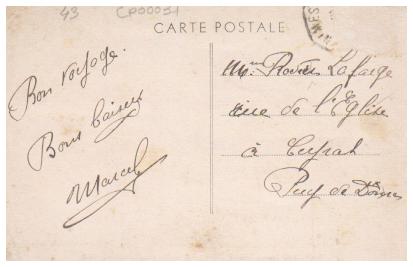 43 CP00051
CARTE POSTALE
MES
Bon voyage.
Bons baisers
Marcel
Mme Lafarge
rue de l'Eglise
à Ceyrat
Puy de Dôme